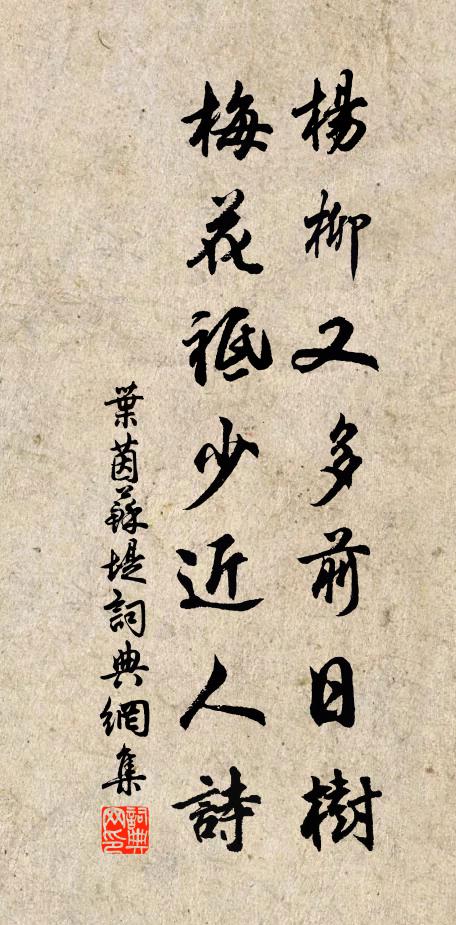 楊柳又多前日樹
梅花祗少近人詩
葉茵蘇堤詞典網集
詞典網印